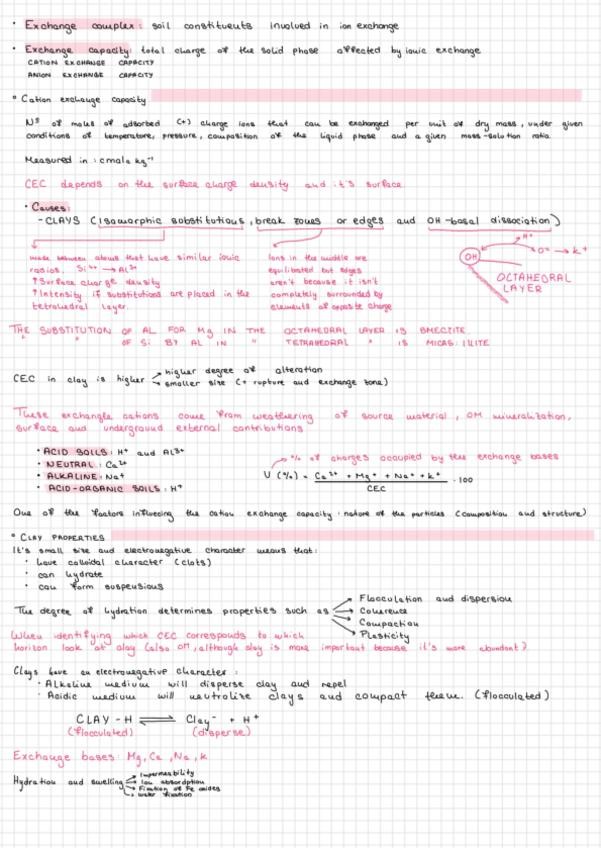 • Exchange complex: soil constituents involved in ion exchange
• Exchange capacity: total charge of the solid phase affected by ionic exchange
CATION EXCHANGE CAPACITY
ANION EXCHANGE CAPACITY
• Cation exchange capacity
Nº of moles of adsorbed (+) charge ions that can be exchanged per unit of dry mass, under given
conditions of temperature, pressure, composition of the liquid phase and a given mass-solution ratio.
Measured in: cmolc kg⁻¹
CEC depends on the surface charge density and it's surface.
• Causes:
- CLAYS (Isomorphic substitutions, break zones or edges and OH-basal dissociation)
made between atoms that have similar ionic
radios. Si⁴⁺ → Al³⁺
↑ Surface charge density
↑ Intensity if substitutions are placed in the
tetrahedral layer.
Ions in the middle are
equilibrated but edges
aren't because it isn't
completely surrounded by
elements of opposite charge
H⁺
OH
O⁻ → K⁺
OCTAHEDRAL
LAYER
THE SUBSTITUTION OF AL FOR Mg IN THE OCTAHEDRAL LAYER IS SMECTITE.
" " OF Si BY AL IN " TETRAHEDRAL " IS MICAS: ILLITE
CEC in clay is higher → higher degree of alteration
→ smaller size (+ rupture and exchange zone)
These exchangle cations come from weathering of source material, OM mineralization,
surface and underground external contributions
• ACID SOILS: H⁺ and Al³⁺
• NEUTRAL: Ca²⁺
• ALKALINE: Na⁺
• ACID-ORGANIC SOILS: H⁺
→ % of charges occupied by the exchange bases
V (%) = Ca²⁺ + Mg⁺ + Na⁺ + K⁺ · 100
CEC
One of the factors influecing the cation exchange capacity: nature of the particles (composition and structure)
• CLAY PROPERTIES
It's small size and electronegative character means that:
• have colloidal character (clots)
• can hydrate
• can form suspensions
The degree of hydration determines properties such as → Flocculation and dispersion
→ Coherence
→ Compaction
→ Plasticity
When identifying which CEC corresponds to which
horizon look at clay (also OM, although clay is more important because it's more abundant)
Clays have an electronegative character:
• Alkaline medium will disperse clay and repel
• Acidic medium will neutrolize clays and compact them. (flocculated)
CLAY - H ⇌ Clay⁻ + H⁺
(flocculated) (disperse)
Exchange bases: Mg, Ca, Na, K
Hydration and swelling → Impermeability
→ Ion absorption
→ Fixation of Fe oxides
→ water fixation